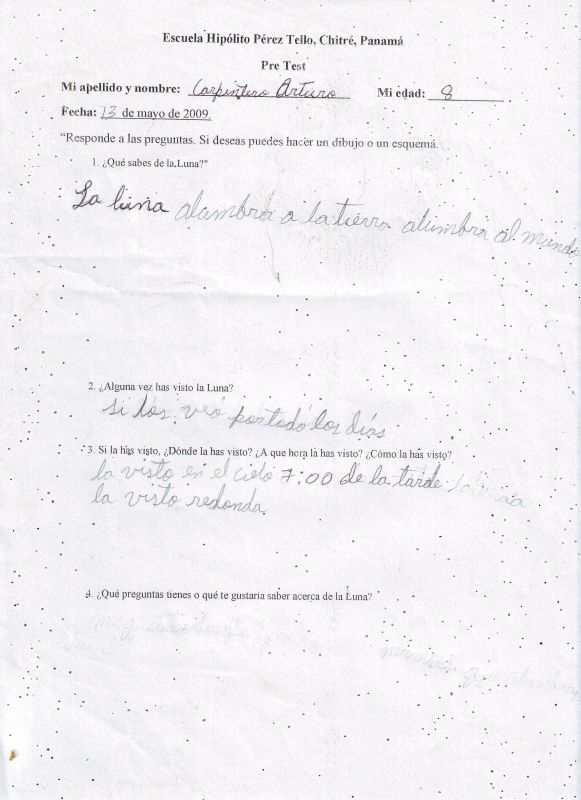 Escuela Hipólito Pérez Tello, Chitré, Panamá
Pre Test
Mi apellido y nombre: Carpintero Arturo Mi edad: 8
Fecha: 13 de mayo de 2009.
"Responde a las preguntas. Si deseas puedes hacer un dibujo o un esquema.
1. ¿Qué sabes de la Luna?"
La luna alumbra a la tierra alumbra al mundo
2. ¿Alguna vez has visto la Luna?
si los veo portodo los dias
3. Si la has visto, ¿Dónde la has visto? ¿A que hora la has visto? ¿Cómo la has visto?
la visto en el cielo 7:00 de la tarde
la visto redonda
4. ¿Qué preguntas tienes o qué te gustaría saber acerca de la Luna?